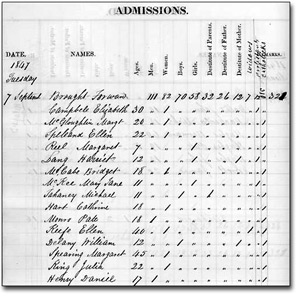 ADMISSIONS.
DATE. NAMES. Ages. Men. Women. Boys. Girls. Destitute of Parents. Destitute of Father. Destitute of Mother.
1847
Tuesday
7 Septemb Brought Forward 111 82 70 58 32 26 12 7
Campbell Elizabeth 30 1
McLoughlin Margt 20 1
Spelland Ellen 22 1
Reel Margaret 7 1
Lang Harriet 12 1
McCabe Bridget 18
McKee Mary Jane 11 1
Mahaney Michael 11 1
Hart Catherine 18 1
Munro Pate 18 1
Keefe Ellen 40 1
Delany William 12 1
Spearing Margaret 45 1
King Julia 22 1
Henry Daniel 17 1